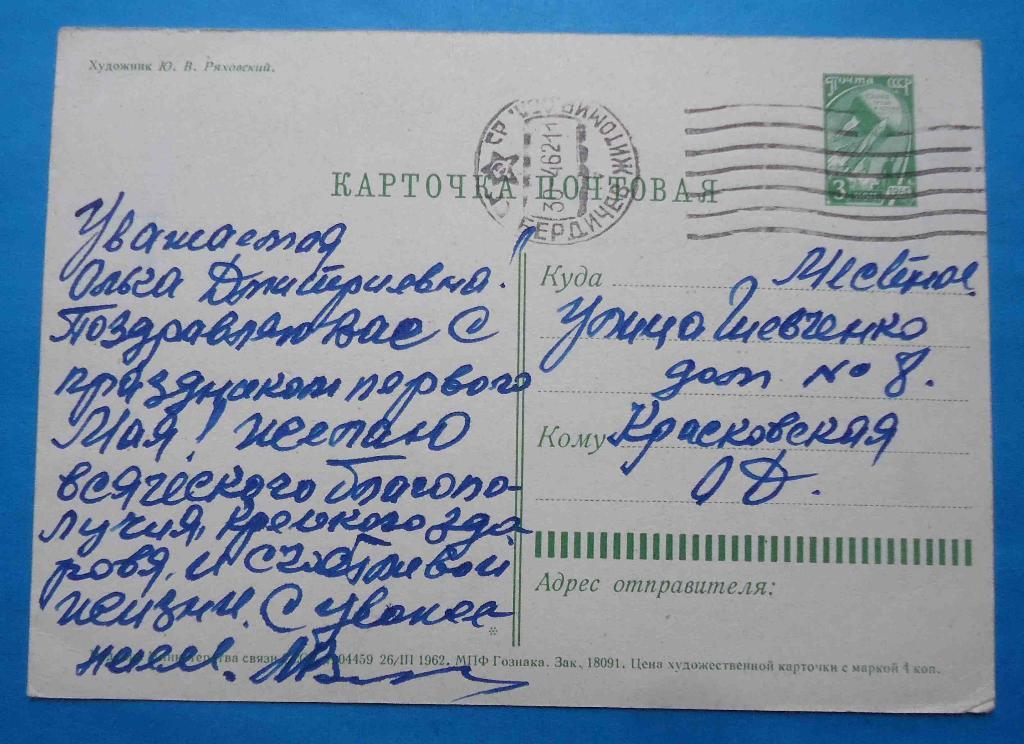 Художник Ю. В. Ряховский.
почта СССР
3
1961
БЕРДИЧЕВ ЖИТОМИР.
КАРТОЧКА ПОЧТОВАЯ
Уважаемая
Ольга Дмитриевна.
Поздравляю Вас С
праздником первого
Мая! желаю
всяческого благопо-
лучия, крепкого здо
ровя. и счастливой
жизни. С уваже
нием.
Куда
Местное
Улица Шевченко
дом № 8.
Кому Красковская
О Д.
Адрес отправителя:
Министерства связи 04459 26/III 1962. МПФ Гознака. Зак. 18091. Цена художественной карточки с маркой 4 коп.